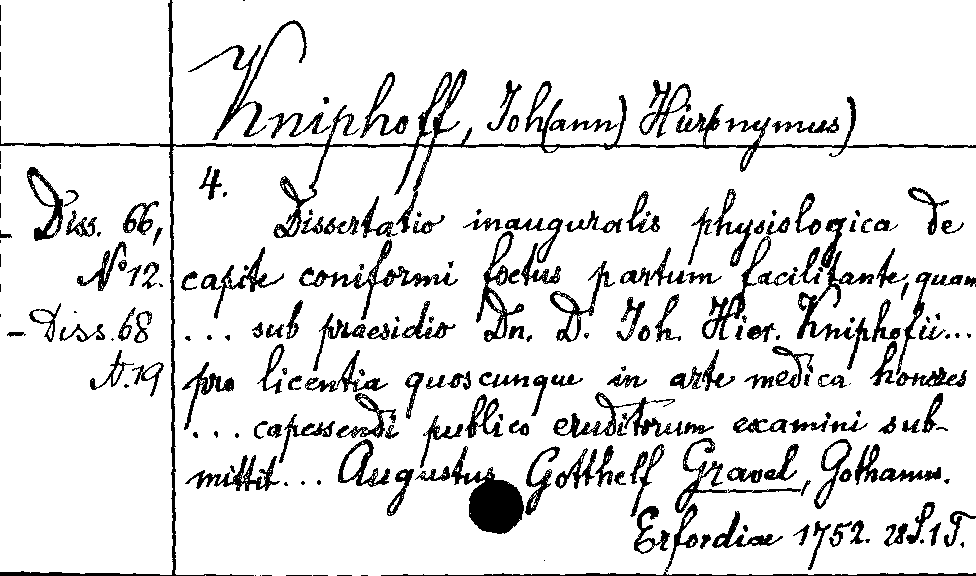 Kniphoff, Joh(ann) Hier(onymus)
4.
Diss. 66,
Dissertatio inauguralis physiologica de
No 12.
capite coniformi foetus partum facilitante, quam
- Diss. 68
... sub praesidio Dn. D. Joh. Hier. Kniphofii...
N. 19
pro licentia quoscunque in arte medica honores
... capessendi publico eruditorum examini sub-
mittit... Augustus Gotthelf Gravel, Gothanus.
Erfordiae 1752. 28 S. 1 T.